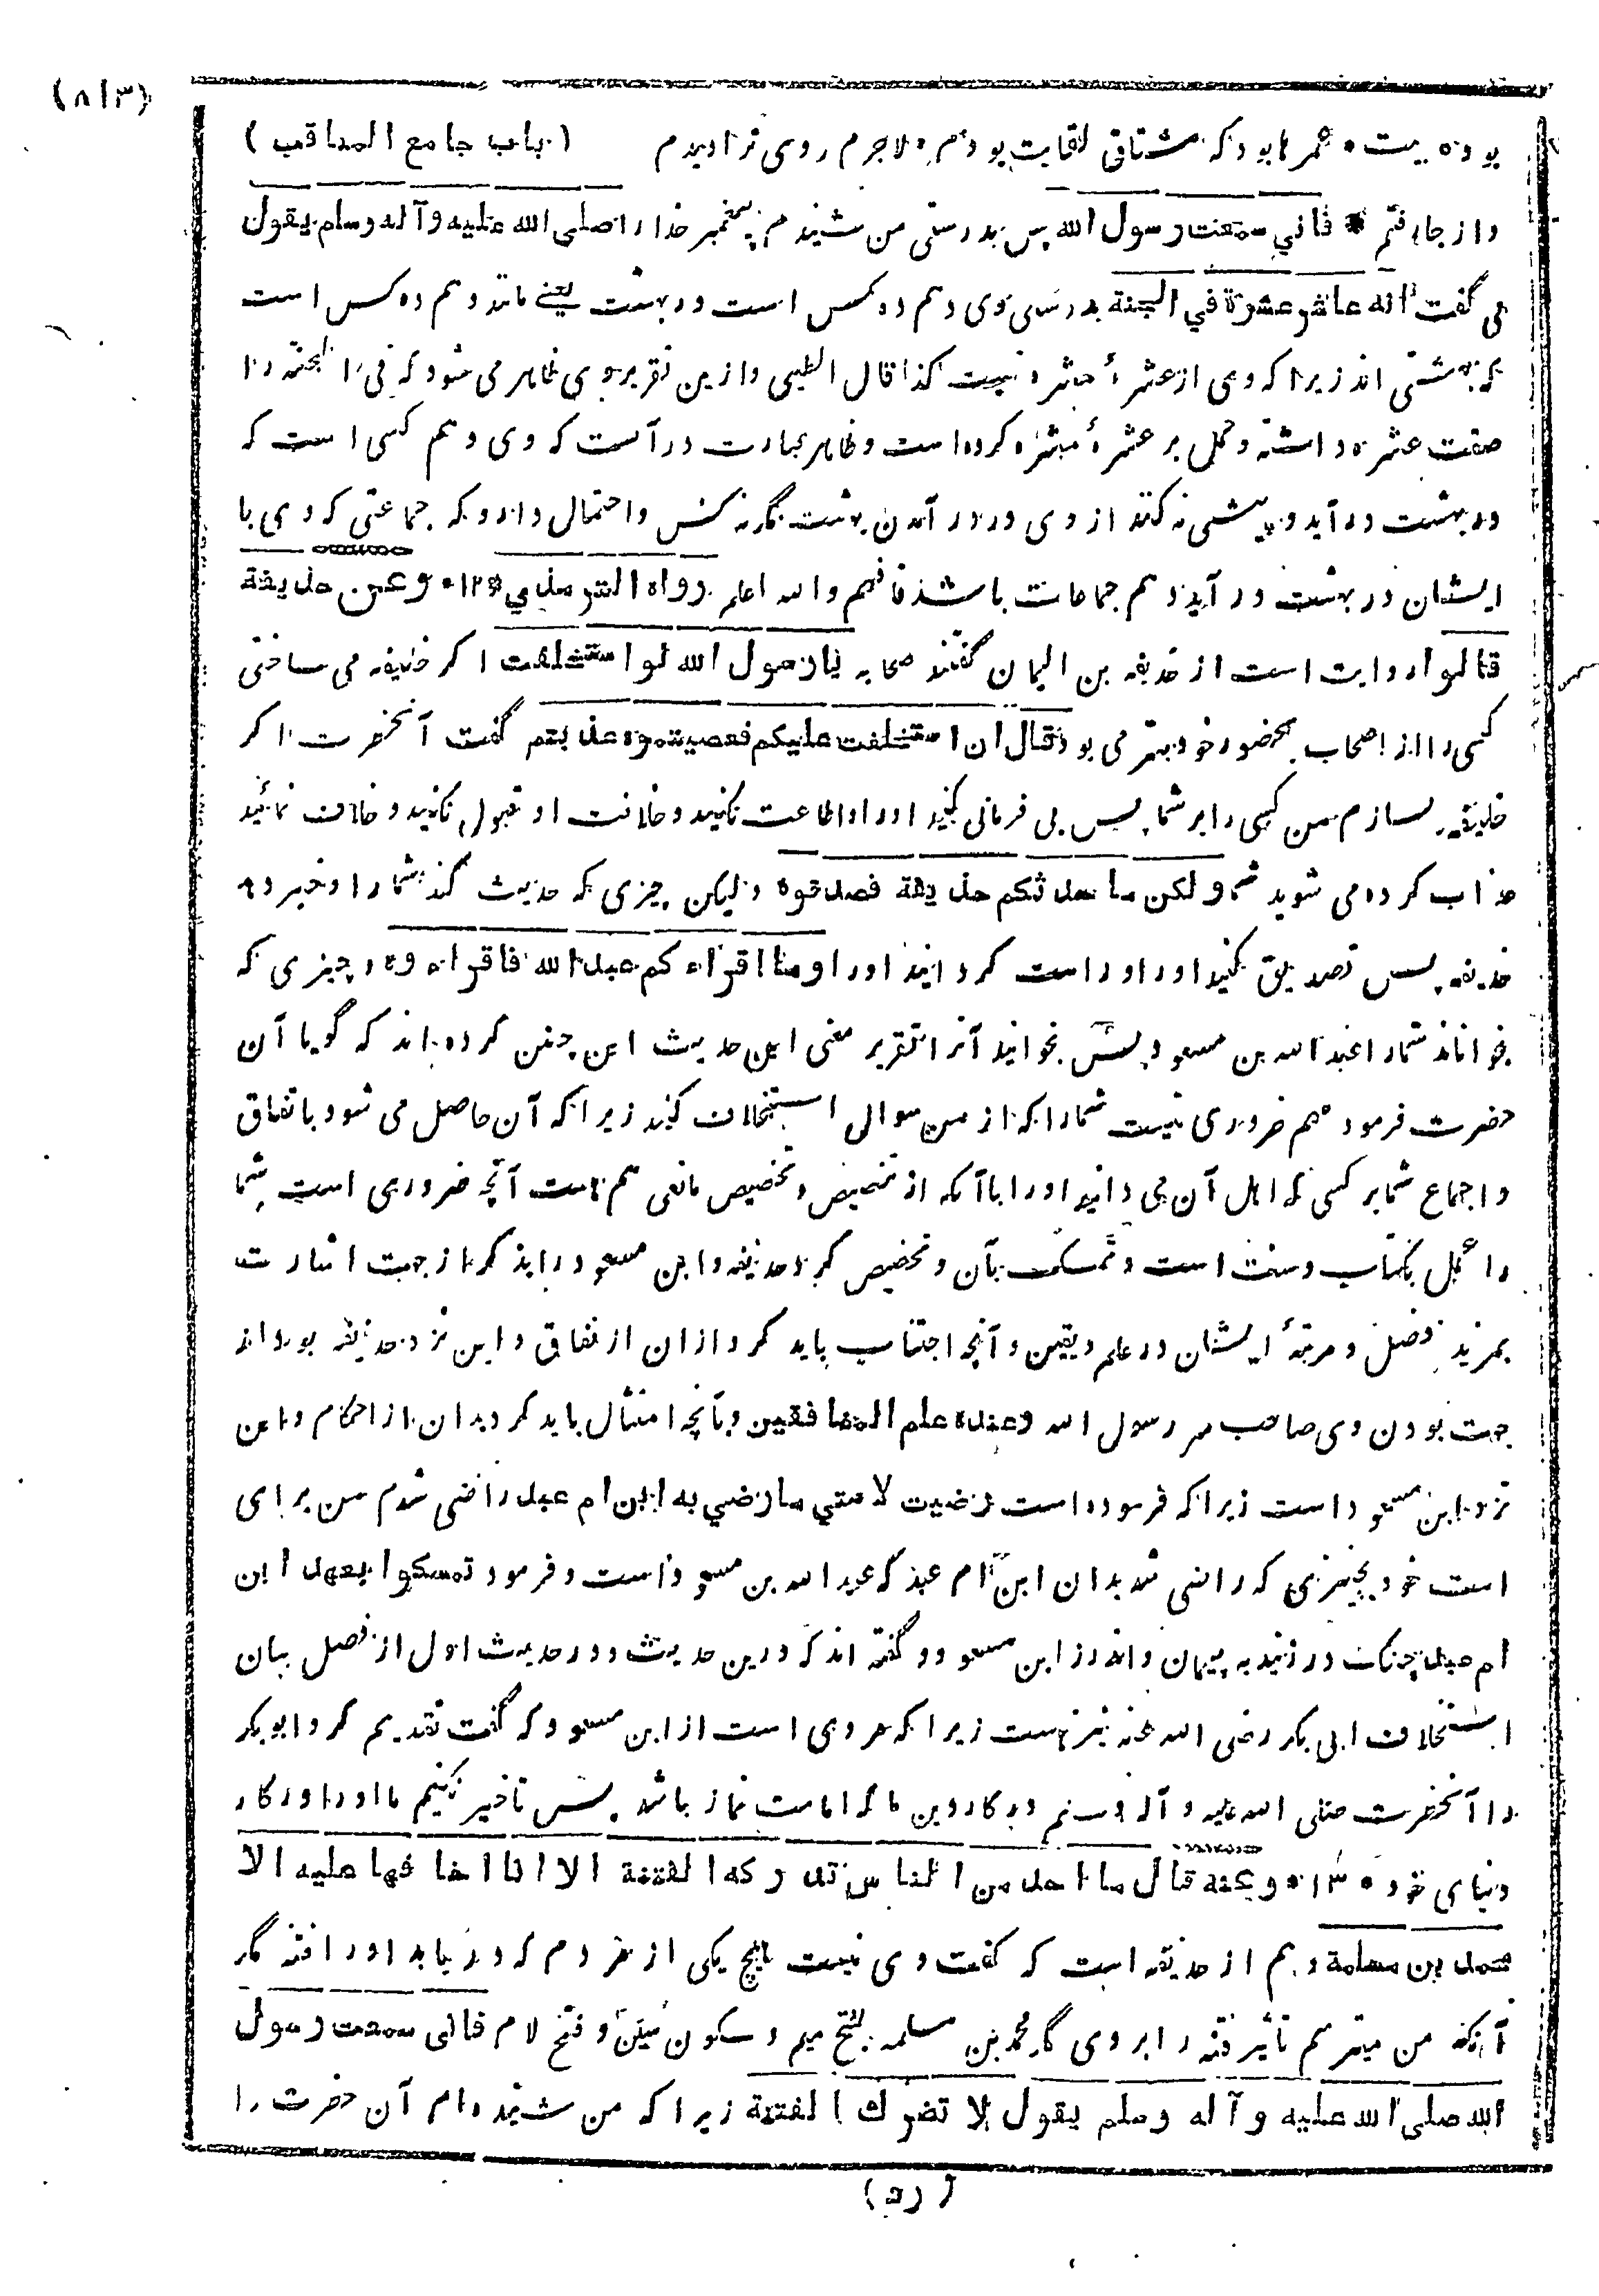 (٨١٣)
(باب جامع المناقب)
بوده بیت • عمرها بود که مشتاق لقایت بودم • لاجرم روی ترا دیدم
و از جا رفتم * فاني سمعت رسول الله پس بدرستی من شنیدم پیغمبر خدا را صلى الله عليه وآله وسلم يقول
می گفت انه عاشر عشرة في الجنة بدرستی وی دهم ده کس است در بهشت یعنے مانند دهم ده کس است
که بهشتی اند زیرا که وی از عشرهٔ مبشره نیست کذا قال الطیبی و ازین تقریر وی ظاهر می شود که فی الجنة را
صفت عشره داشته و حمل بر عشرهٔ مبشره کرده است و ظاهر عبارت در آنست که وی دهم کسی است که
در بهشت در آید و پیشی نه کنند از وی در در آمدن بهشت مگر نه کس و احتمال دارد که جماعتی که وی با
ایشان در بهشت در آید دهم جماعات باشد فافهم و الله اعلم رواه الترمذي • ١٢ • وعن حذيفة
قالوا روایت است از حذیفه بن الیمان گفتند صحابه يا رسول الله لو استخلفت اگر خلیفه می ساختی
کسی را از اصحاب بحضور خود بهتر می بود قال ان استخلفت عليكم فعصيتموه عذبتم گفت آنحضرت اگر
خلیفه سازم من کسی را بر شما پس بی فرمانی کنید او را و اطاعت نکنید و خلافت او قبول نکنید و خلاف نمائید
عذاب کرده می شوید شما ولكن ما حدثكم حذيفة فصدقوه و لیکن چیزی که حدیث کند شما را و خبر دهد
حذیفه پس تصدیق کنید او را و راست گردانید او را وما اقراءكم عبد الله فاقراءوه و چیزی که
بخواناند شما را عبد الله بن مسعود پس بخوانید آنرا تقریر معنی این حدیث این چنین کرده اند که گویا آن
حضرت فرمود مهم ضروری نیست شما را که از من سوال استخلاف کنید زیرا که آن حاصل می شود باتفاق
و اجماع شما بر کسی که اهل آن می دانید او را با آنکه از تنصیص و تخصیص مانعی هم هست آنچه ضروری است شما
را عمل بکتاب و سنت است و تمسک بآن و تخصیص کرد حذیفه و ابن مسعود را بذکر از جهت اشارت
بمزید فضل و مرتبهٔ ایشان در علم و یقین و آنچه اجتناب باید کرد از ان از نفاق و این نزد حذیفه بود از
جهت بودن وی صاحب سر رسول الله وعنده علم المنافقين و بآنچه امتثال باید کرد بدان از احکام و این
نزد ابن مسعود است زیرا که فرموده است رضيت لامتي ما رضي به ابن ام عبد راضی شدم من برای
امت خود بچیزی که راضی شد بدان ابن ام عبد که عبد الله بن مسعود است و فرمود تمسكوا بعهد ابن
ام عبد چنگ در زنید به پیمان و اندرز ابن مسعود و گفته اند که درین حدیث و در حدیث اول از فصل بیان
استخلاف ابی بکر رضی الله عنه نیز هست زیرا که مروی است از ابن مسعود که گفت تقدیم کرد ابو بکر
را آنحضرت صلی الله علیه و آله و سلم در کار دین ما که امامت نماز باشد پس تاخیر نکنیم ما او را در کار
دنیای خود • ١٣ • وعنه قال ما احد من الناس تدركه الفتنة الا انا اخافها عليه الا
محمد بن مسلمة و هم از حذیفه است که گفت وی نیست هیچ یکی از مردم که در یابد او را فتنه مگر
آنکه من میترسم تاثیر فتنه را بر وی مگر محمد بن مسلمه بفتح میم و سکون سین و فتح لام فاني سمعت رسول
الله صلى الله عليه وآله وسلم يقول لا تضرك الفتنة زیرا که من شنیده ام آن حضرت را